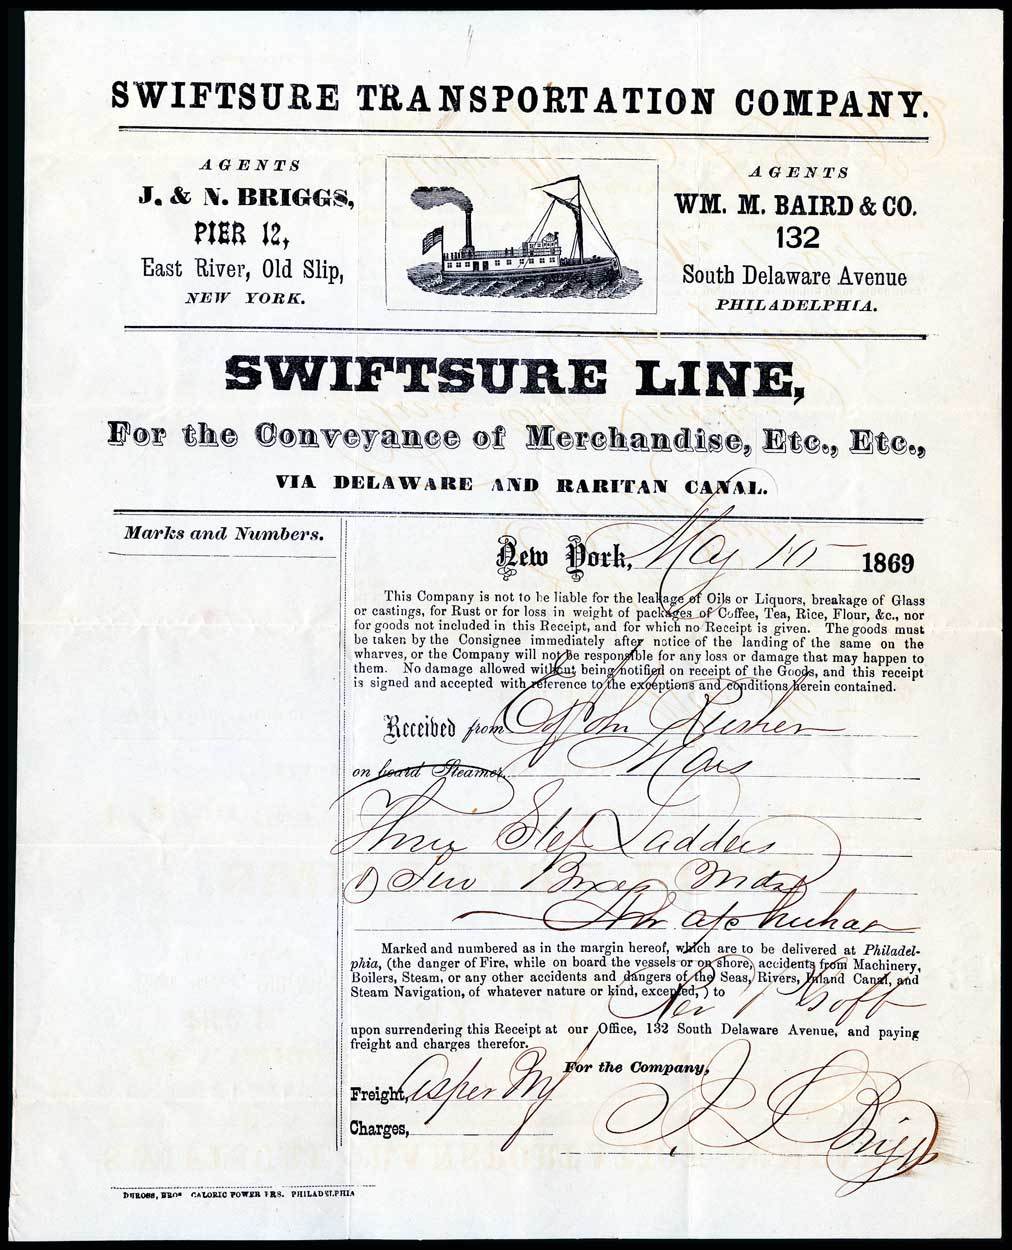 SWIFTSURE TRANSPORTATION COMPANY.
AGENTS
J. & N. BRIGGS,
PIER 12,
East River, Old Slip,
NEW YORK.
AGENTS
WM. M. BAIRD & CO.
132
South Delaware Avenue
PHILADELPHIA.
SWIFTSURE LINE,
For the Conveyance of Merchandise, Etc., Etc.,
VIA DELAWARE AND RARITAN CANAL.
Marks and Numbers.
New York, May 1869
This Company is not to be liable for the leakage of Oils or Liquors, breakage of Glass
or castings, for Rust or for loss in weight of packages of Coffee, Tea, Rice, Flour, &c., nor
for goods not included in this Receipt, and for which no Receipt is given. The goods must
be taken by the Consignee immediately after notice of the landing of the same on the
wharves, or the Company will not be responsible for any loss or damage that may happen to
them. No damage allowed without being notified on receipt of the Goods, and this receipt
is signed and accepted with reference to the exceptions and conditions herein contained.
Received from John
on board Steamer
Three Step Ladders
Two Boxes
Marked and numbered as in the margin hereof, which are to be delivered at Philadel-
phia, (the danger of Fire, while on board the vessels or on shore, accidents from Machinery,
Boilers, Steam, or any other accidents and dangers of the Seas, Rivers, Inland Canal, and
Steam Navigation, of whatever nature or kind, excepted,) to
upon surrendering this Receipt at our Office, 132 South Delaware Avenue, and paying
freight and charges therefor.
For the Company,
Freight, as per
Charges,
Briggs
DUROSS, BROS CALORIC POWER PRS. PHILADELPHIA